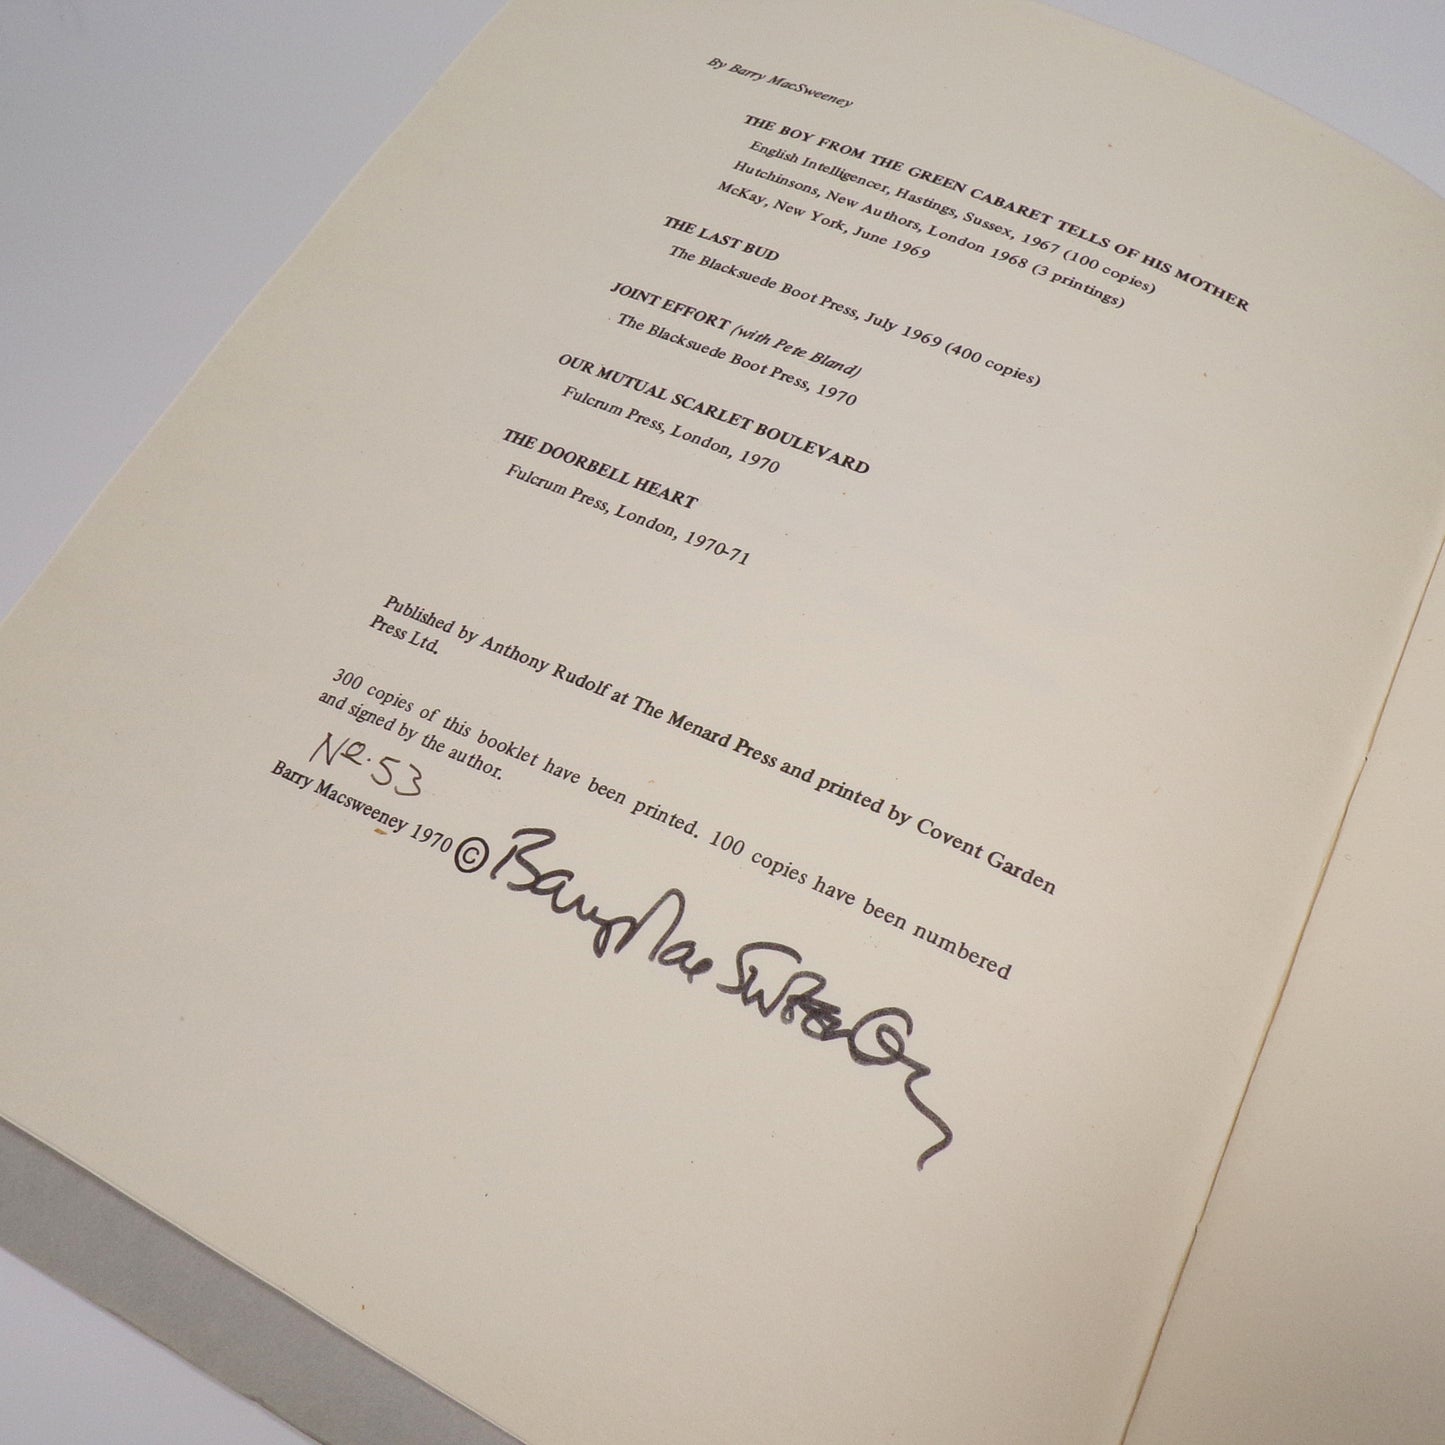 By Barry MacSweeney
THE BOY FROM THE GREEN CABARET TELLS OF HIS MOTHER
English Intelligencer, Hastings, Sussex, 1967 (100 copies)
Hutchinsons, New Authors, London 1968 (3 printings)
McKay, New York, June 1969
THE LAST BUD
The Blacksuede Boot Press, July 1969 (400 copies)
JOINT EFFORT (with Pete Bland)
The Blacksuede Boot Press, 1970
OUR MUTUAL SCARLET BOULEVARD
Fulcrum Press, London, 1970
THE DOORBELL HEART
Fulcrum Press, London, 1970-71
Published by Anthony Rudolf at The Menard Press and printed by Covent Garden
Press Ltd.
300 copies of this booklet have been printed. 100 copies have been numbered
and signed by the author.
No. 53
Barry Macsweeney 1970 ©
Barry MacSweeney